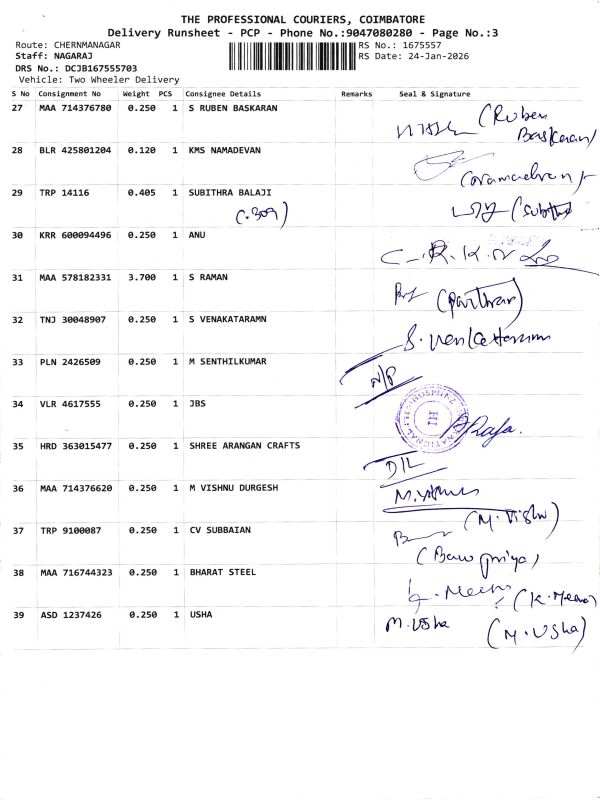 THE PROFESSIONAL COURIERS, COIMBATORE
Delivery Runsheet - PCP - Phone No.:9047080280 - Page No.:3
Route: CHERNMANAGAR RS No.: 1675557
Staff: NAGARAJ RS Date: 24-Jan-2026
DRS No.: DCJB167555703
Vehicle: Two Wheeler Delivery
S No Consignment No Weight PCS Consignee Details Remarks Seal & Signature
27 MAA 714376780 0.250 1 S RUBEN BASKARAN
(Ruben
Baskaran)
28 BLR 425801204 0.120 1 KMS NAMADEVAN
29 TRP 14116 0.405 1 SUBITHRA BALAJI
(.309)
30 KRR 600094496 0.250 1 ANU
31 MAA 578182331 3.700 1 S RAMAN
32 TNJ 30048907 0.250 1 S VENAKATARAMN
33 PLN 2426509 0.250 1 M SENTHILKUMAR
N/P
34 VLR 4617555 0.250 1 JBS
Raja.
35 HRD 363015477 0.250 1 SHREE ARANGAN CRAFTS
D/L
36 MAA 714376620 0.250 1 M VISHNU DURGESH
37 TRP 9100087 0.250 1 CV SUBBAIAN
38 MAA 716744323 0.250 1 BHARAT STEEL
39 ASD 1237426 0.250 1 USHA
M.Usha
(M.Usha)